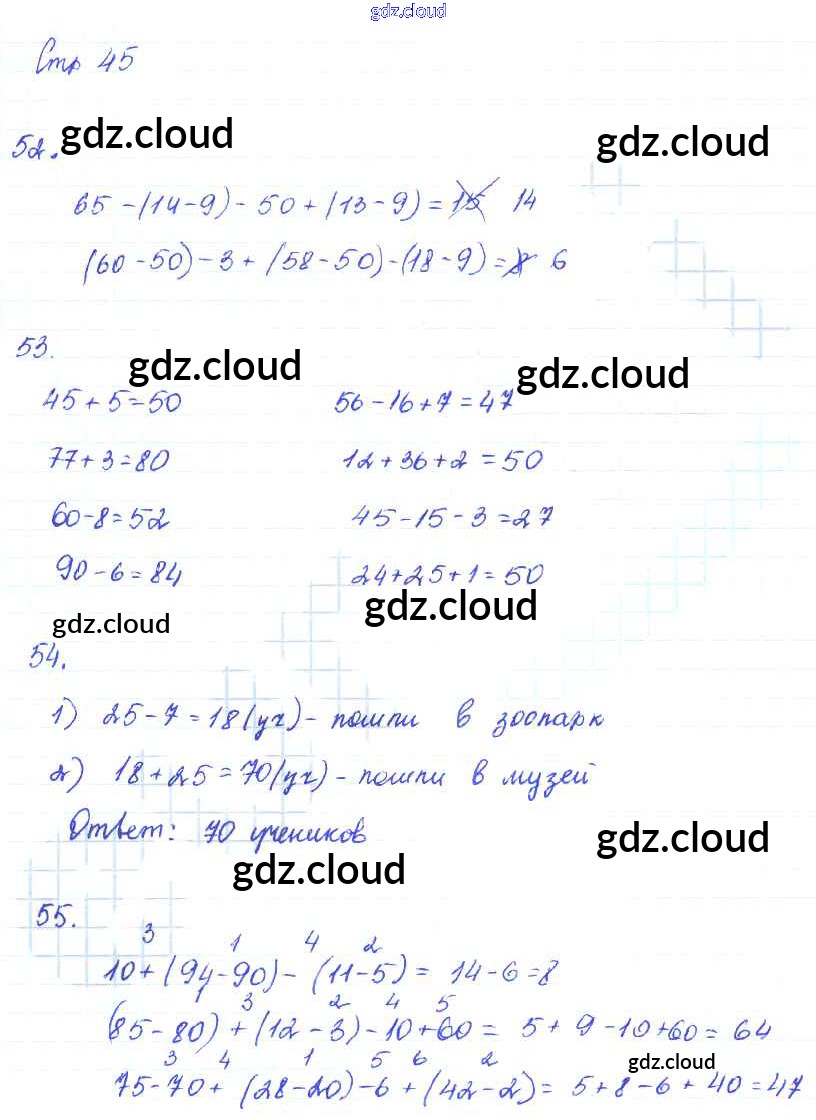 gdz.cloud
Стр 45
gdz.cloud
gdz.cloud
52.
65-(14-9)-50+(13-9)=15 14
(60-50)-3+(58-50)-(18-9)=8 6
53.
gdz.cloud
gdz.cloud
45+5=50 56-16+7=47
77+3=80 12+36+2=50
60-8=52 45-15-3=27
90-6=84 24+25+1=50
gdz.cloud
gdz.cloud
54.
1) 25-7=18(уч)- пошли в зоопарк
2) 18+25=70(уч)- пошли в музей
Ответ: 70 учеников
gdz.cloud
gdz.cloud
55.
3 1 4 2
10+(94-90)-(11-5)= 14-6=8
1 3 2 4 5
(85-80)+(12-3)-10+60= 5+9-10+60=64
3 4 1 5 6 2
gdz.cloud
75-70+(28-20)-6+(42-2)= 5+8-6+40=47